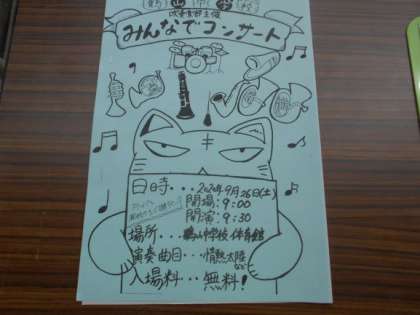 吹奏楽部主催
みんなでコンサート
日時・・・2020年9月26日(土)
開場:9:00
開演:9:30
場所・・・鶴山中学校 体育館
演奏曲目・・・情熱大陸
など
入場料・・・無料!